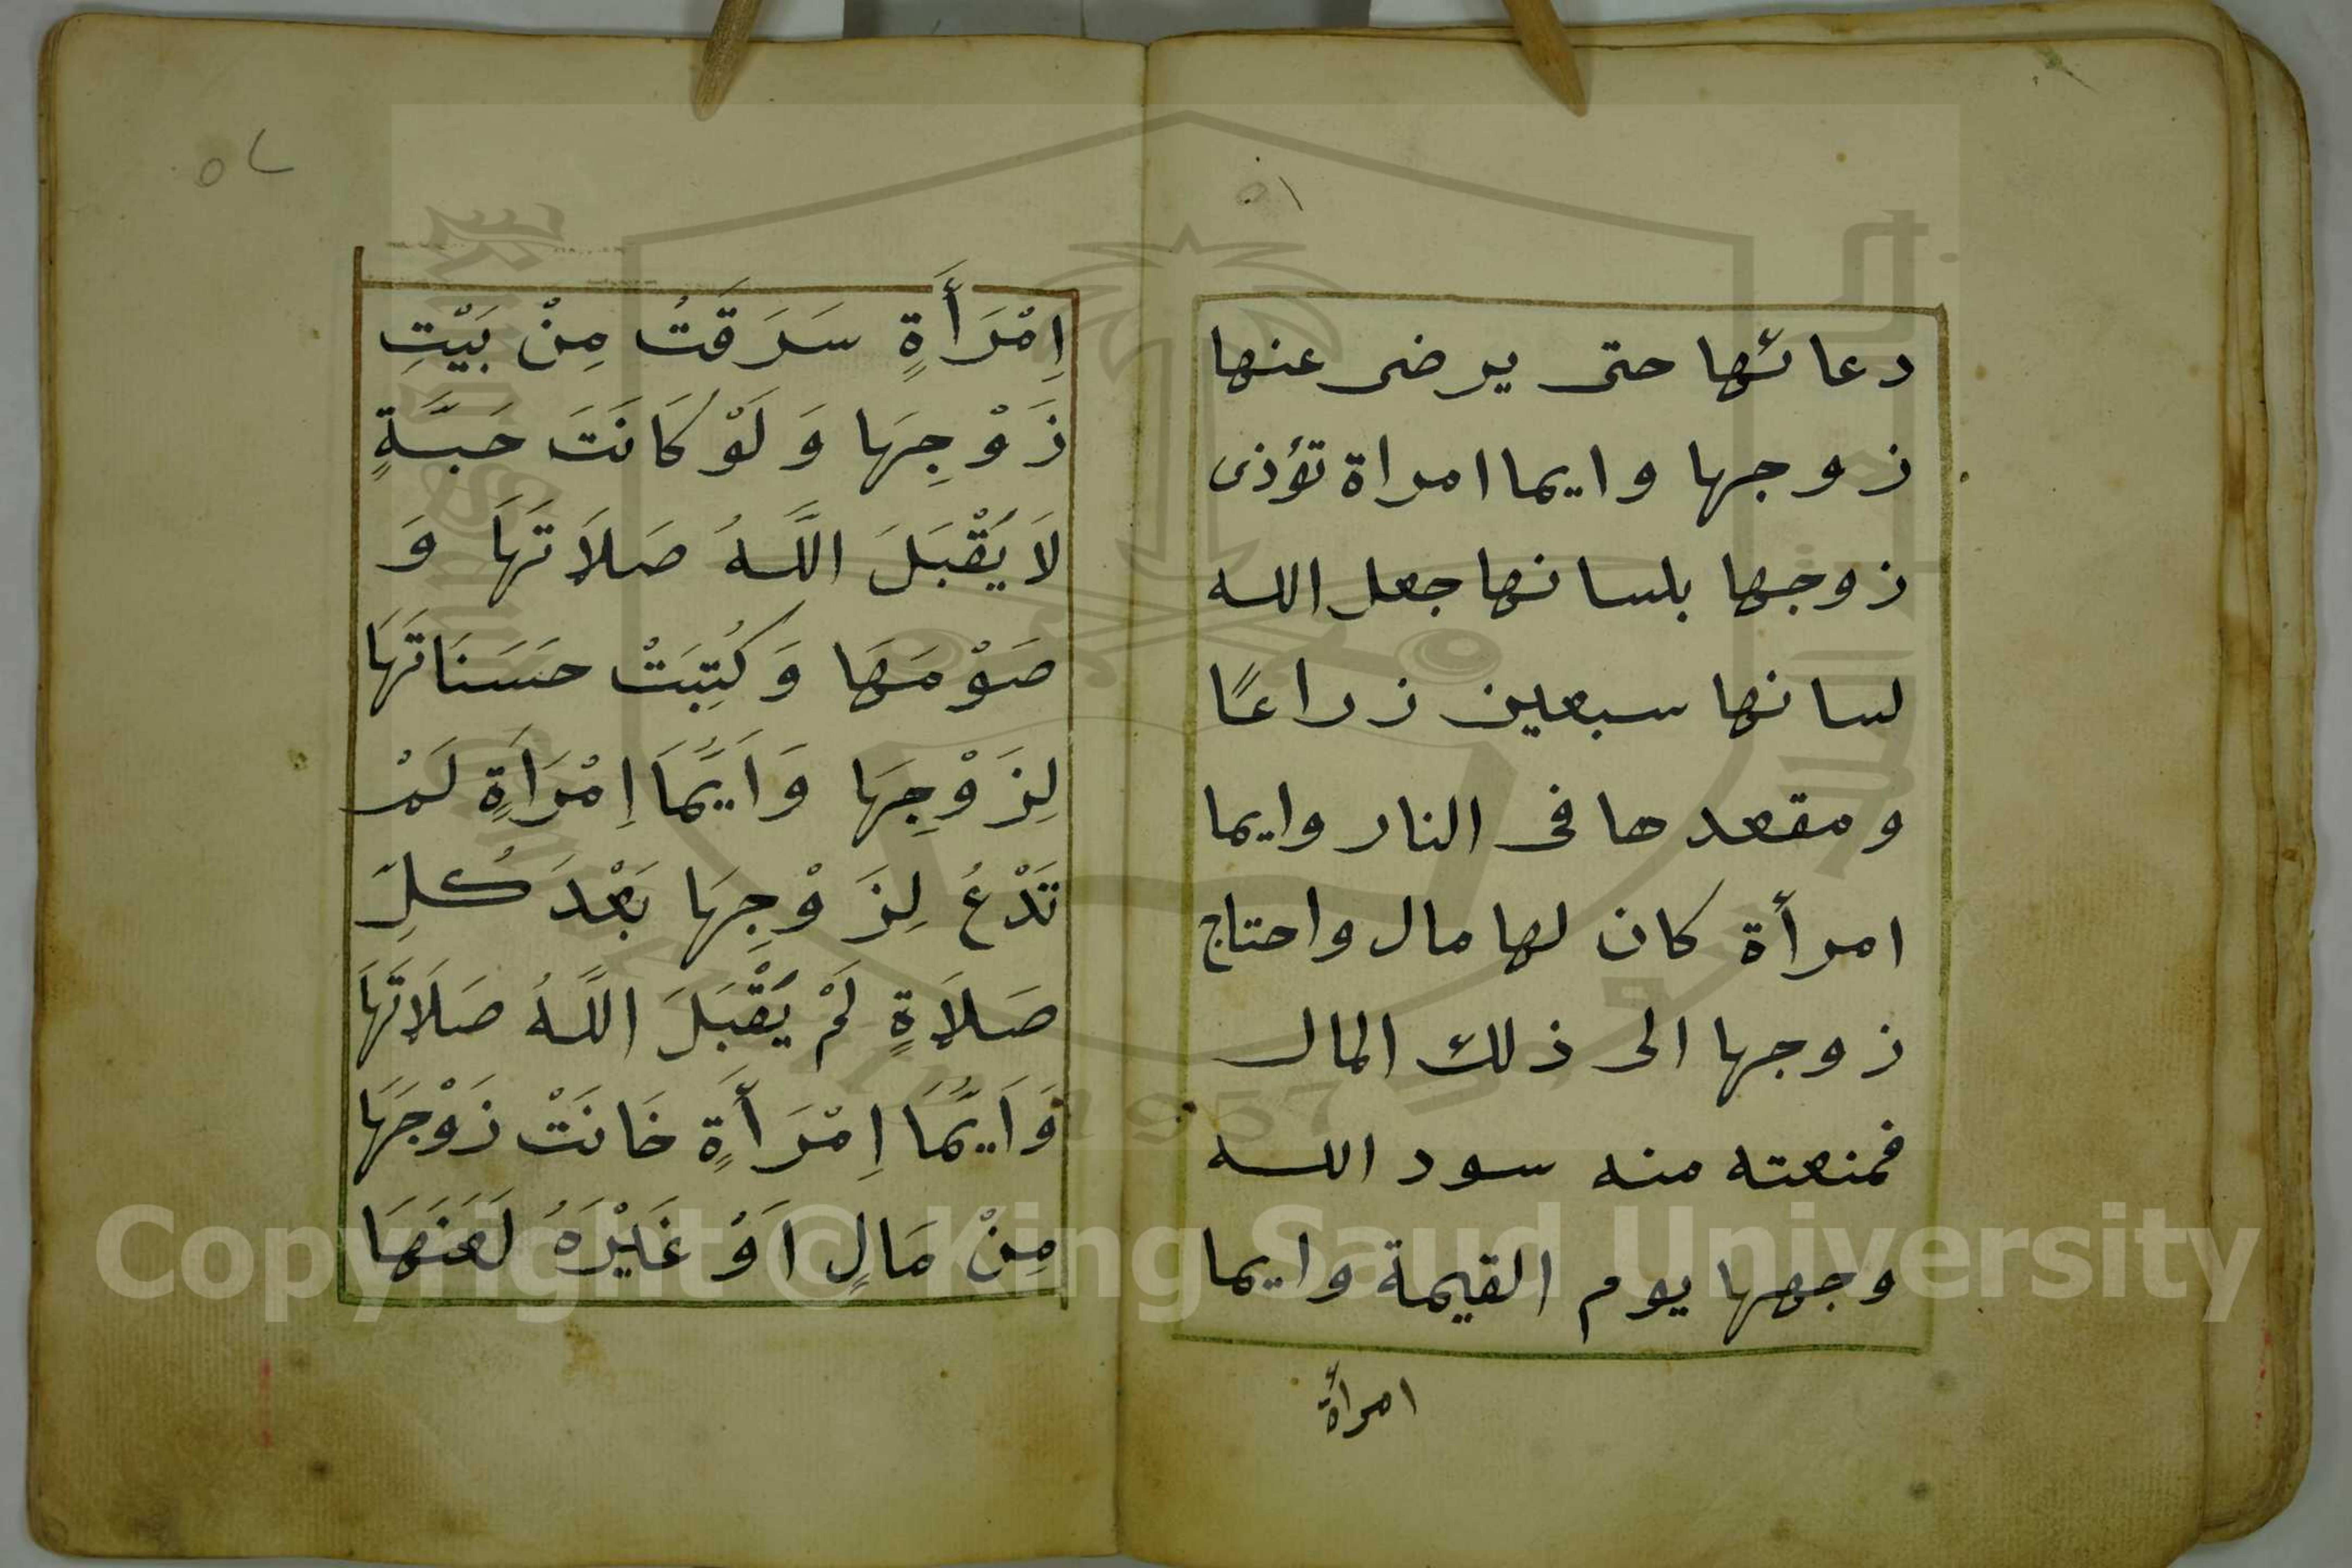 ٥١
دعائها حتى يرضى عنها
زوجها وايما امراة تؤذى
زوجها بلسانها جعل الله
لسانها سبعين زراعًا
ومقعدها فى النار وايما
امرأة كان لها مال واحتاج
زوجها الى ذلك المال
فمنعته منه سود الله
وجهها يوم القيمة وايما
امرأة
٥٢
اِمْرَأَةٍ سَرَقَتُ مِنْ بَيْتِ
زَوْجِهَا وَلَوْ كَانَتَ حَبَّةٍ
لَا يَقْبَلَ اللَّهُ صَلَاتَهَا وَ
صَوْمَهَا وَكُتِبَتْ حَسَنَاتَهَا
لِزَوْجِهَا وَاَيُّمَا اِمْرَاَةٍ لَمْ
تَدْعُ لِزَوْجِهَا بَعْدَ كُلِّ
صَلَاةٍ لَمْ يَقْبَلَ اللَّهُ صَلَاتَهَا
وَاَيُّمَا اِمْرَأَةٍ خَانَتْ زَوْجَهَا
مِنْ مَالٍ اَوْ غَيْرَهُ لَعَنَهَا
Copyright © King Saud University
1957